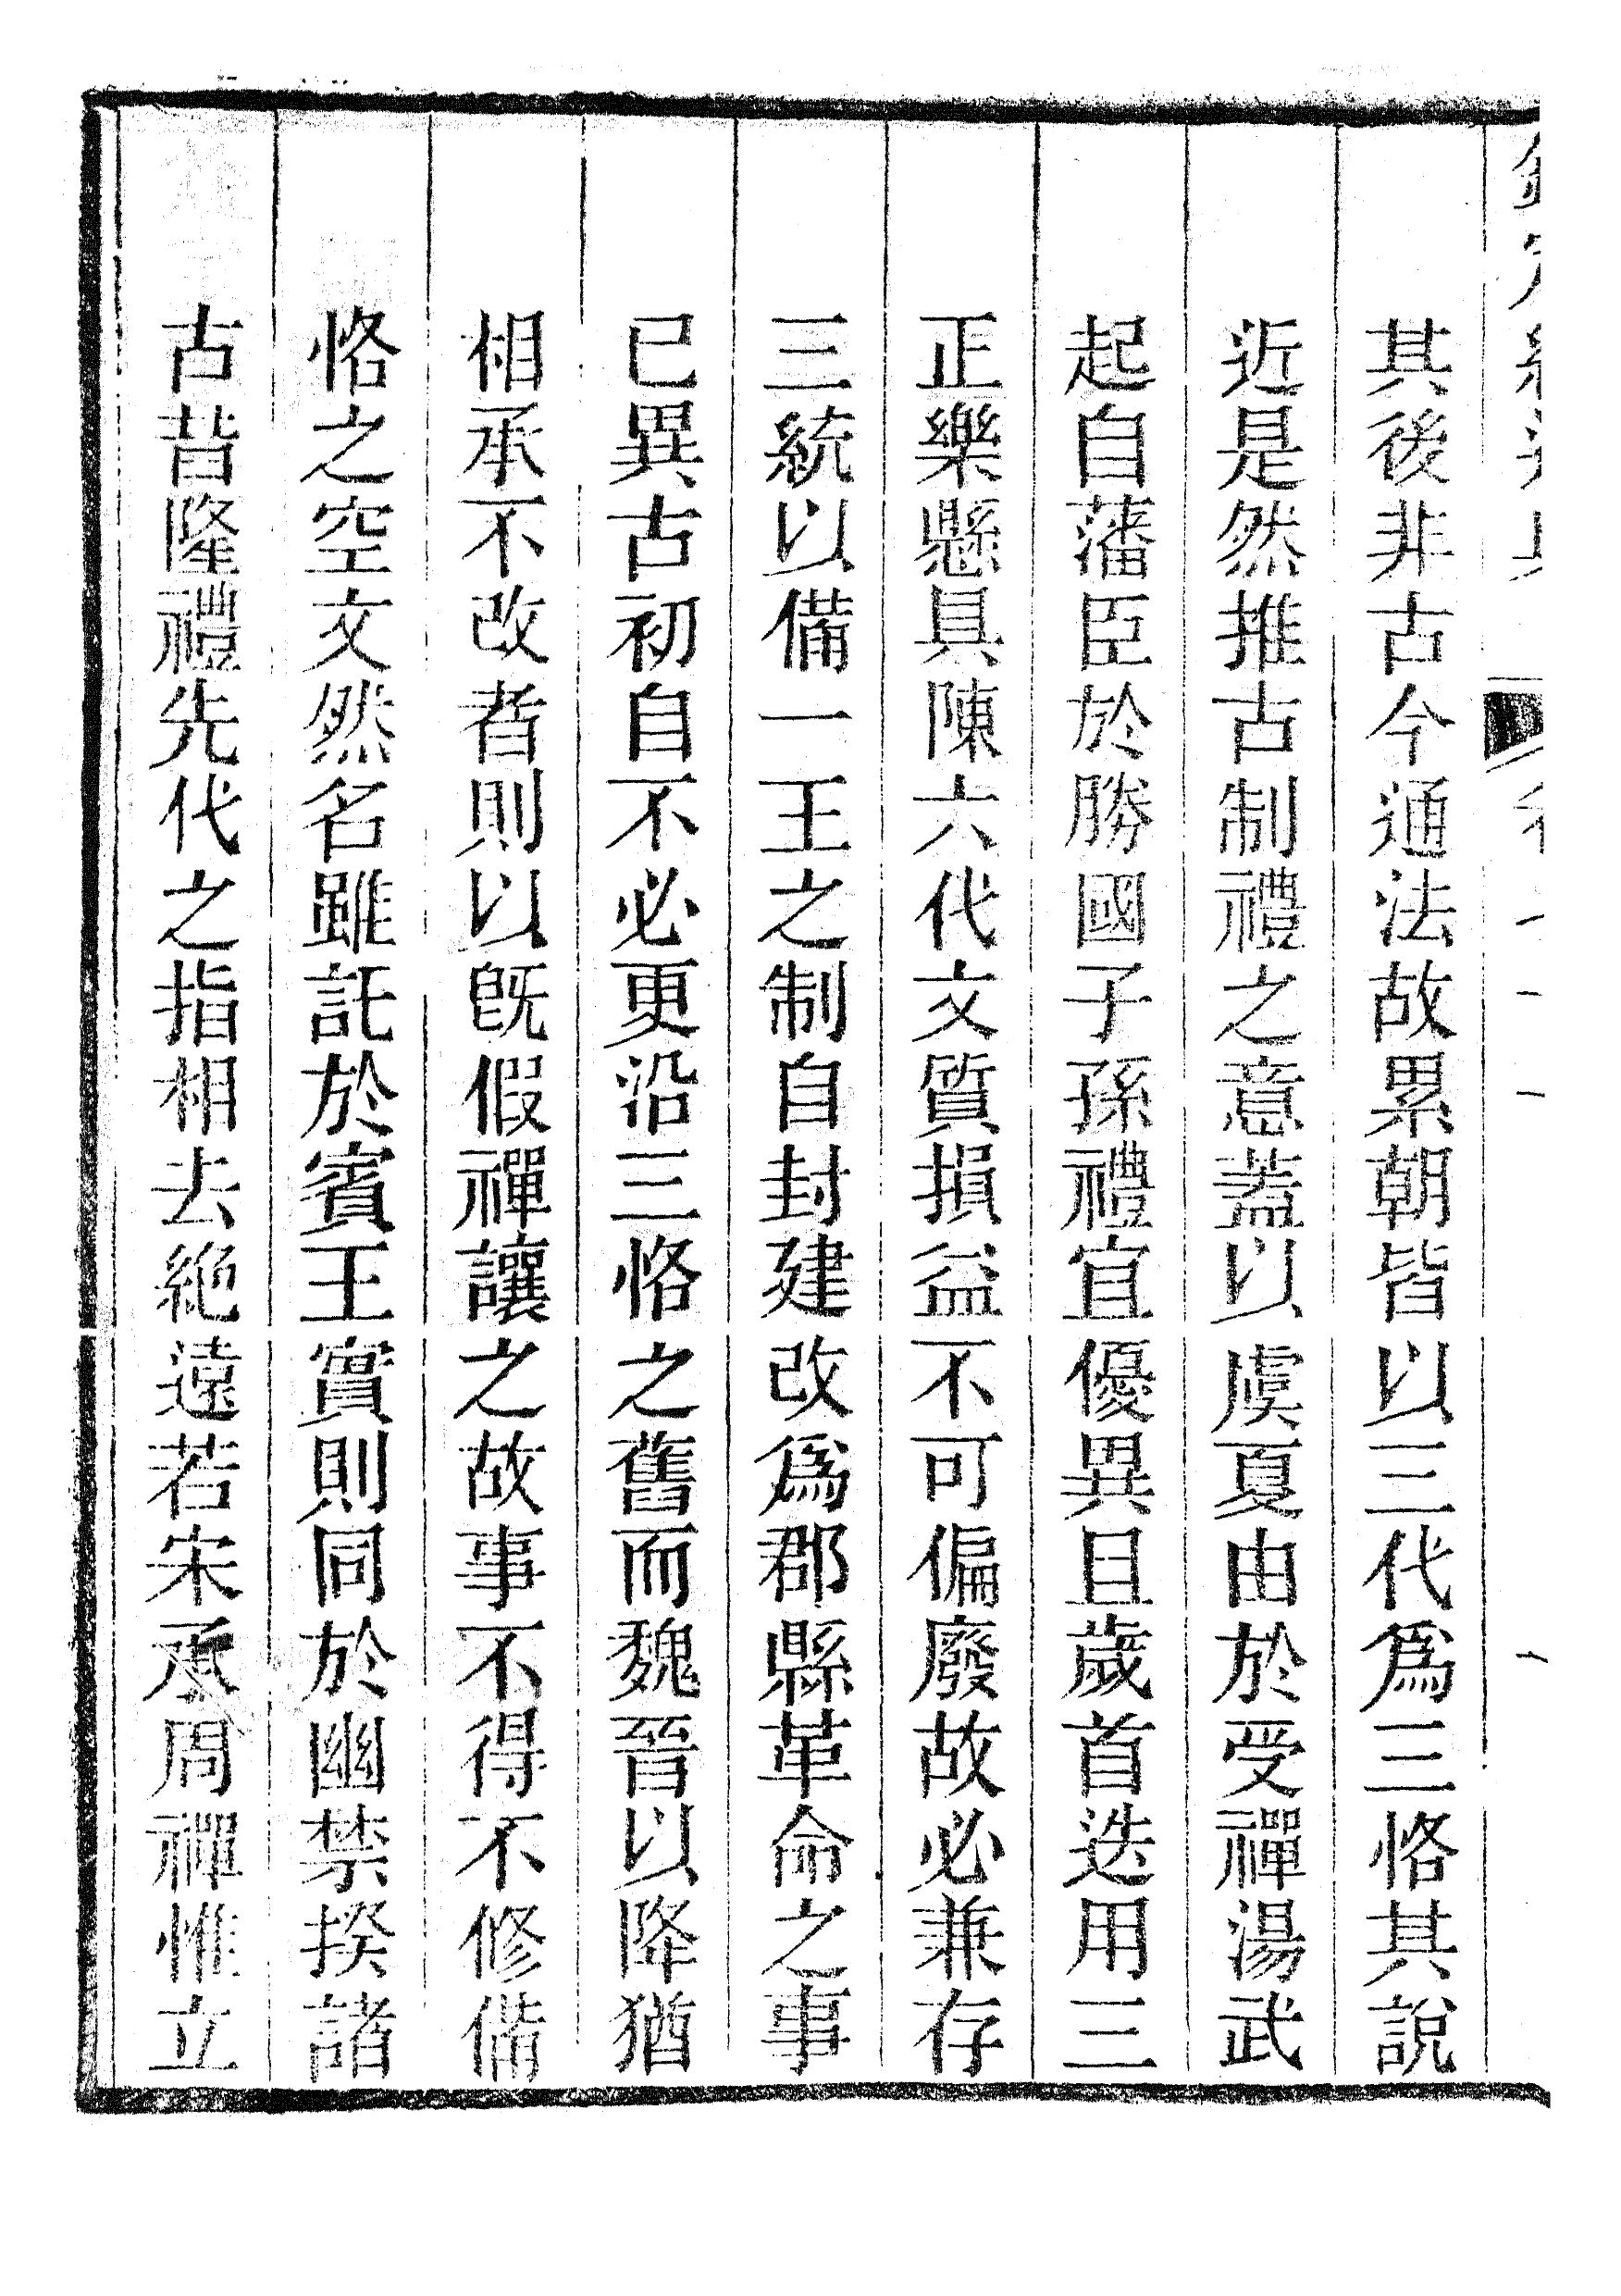 其後非古今通法故累朝皆以三代為三恪其說
近是然推古制禮之意蓋以虞夏由於受禪湯武
起自藩臣於勝國子孫禮宜優異且歲首迭用三
正樂懸具陳六代文質損益不可偏廢故必兼存
三統以備一王之制自封建改為郡縣革命之事
已異古初自不必更沿三恪之舊而魏晉以降猶
相承不改者則以旣假禪讓之故事不得不修備
恪之空文然名雖託於賓王實則同於幽禁揆諸
古昔隆禮先代之指相去絶遠若宋承周禪惟立